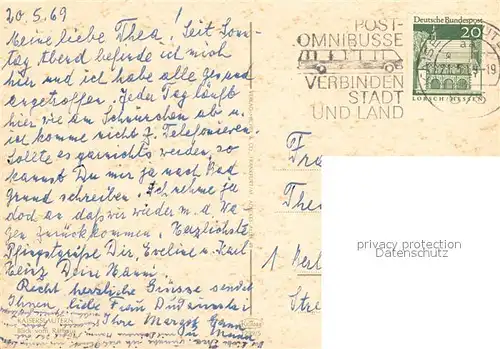 20. 5. 69 !
Meine liebe Thea! Seit Sonn-
tag Abend befinde ich mich
hier und ich habe alle gesund
angetroffen. Jeden Tag läuft
hier wie am Schnürchen ab u.
ich komme nicht z. Telefonieren.
Sollte es garnichts werden, so
kannst Du mir ja nach Bad
Grund schreiben. Ich nehme ja
doch an daß wir wieder m. d. Wa-
gen zurückkommen. Herzlichste
Pfingstgrüße Dir, Eveline u. Karl
Heinz Deine Hanni.
Recht herzliche Grüsse sendet
Ihnen, liebe Frau
Ihre Margot
u. Mann
KAISERSLAUTERN
Blick vom Rathaus
POST-
OMNIBUSSE
VERBINDEN
STADT
UND LAND
Deutsche Bundespost
20
LORSCH/HESSEN
-19
Fra
The
1
Stre
privacy protection
Datenschutz